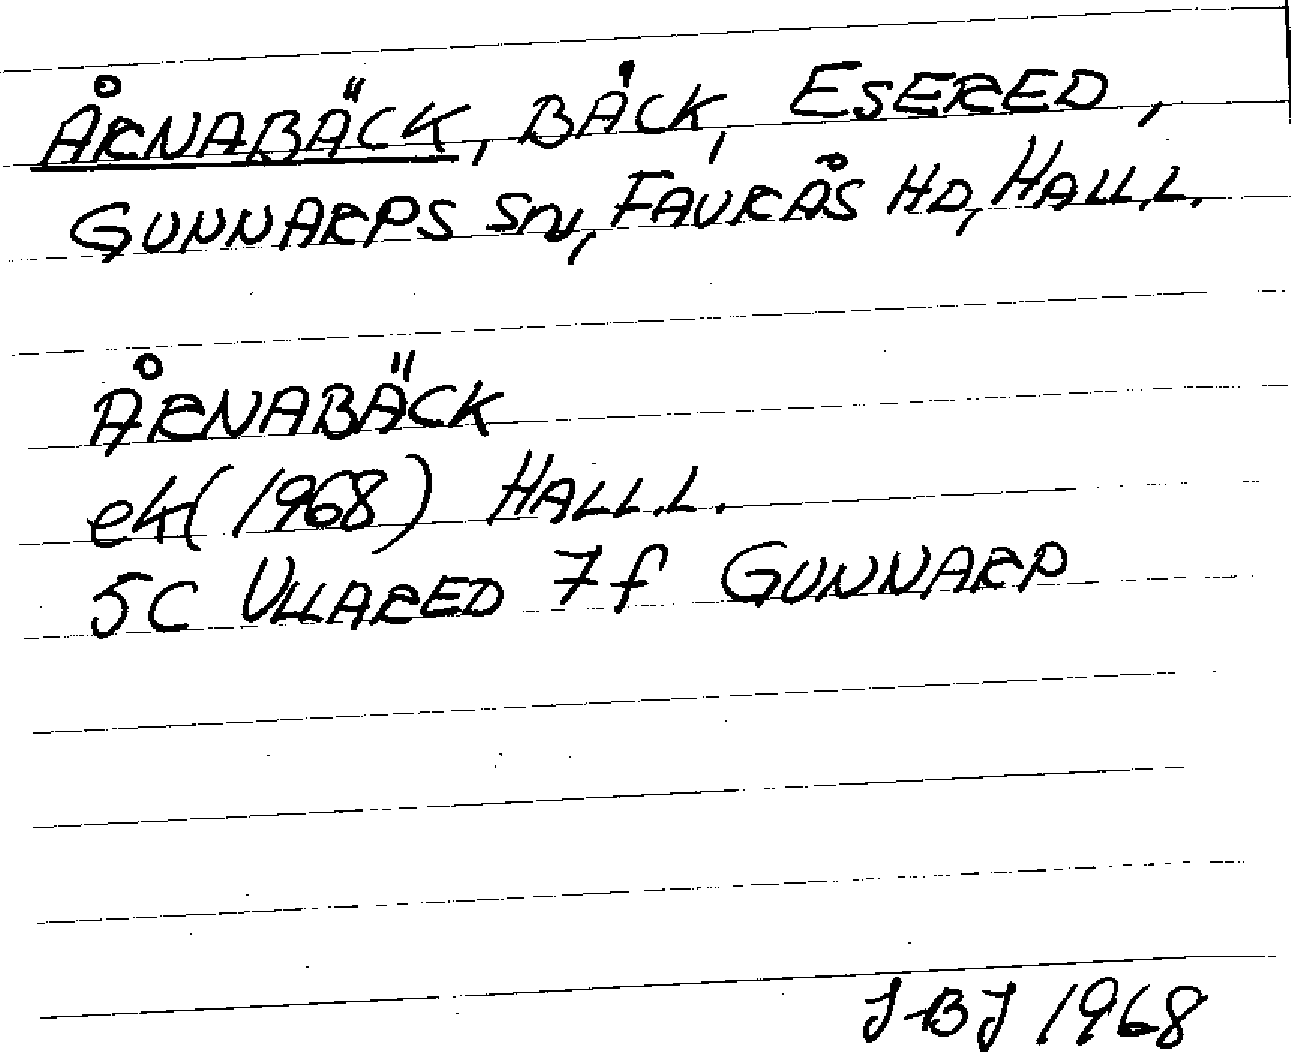 ÅRNABÄCK, BÄCK, ESERED,
GUNNARPS SN, FAURÅS HD, HALL.L.
ÅRNABÄCK
ek (1968) HALL.L.
5C ULLARED 7f GUNNARP
JBJ 1968